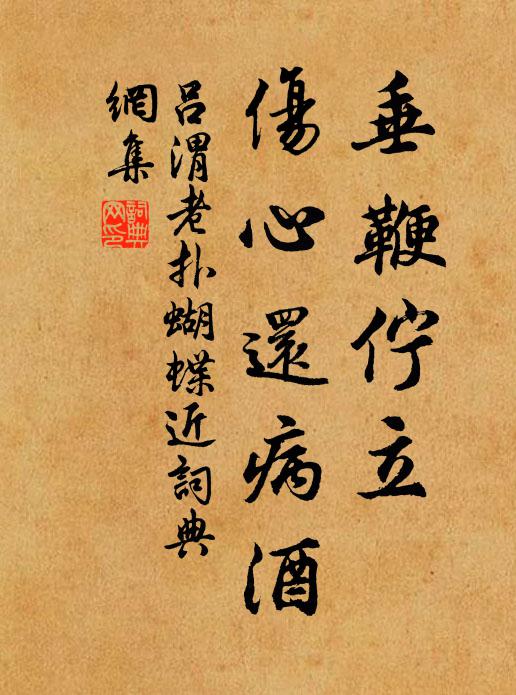 垂鞭佇立
傷心還病酒
呂渭老扑蝴蝶近詞典
網集
詞典
网印